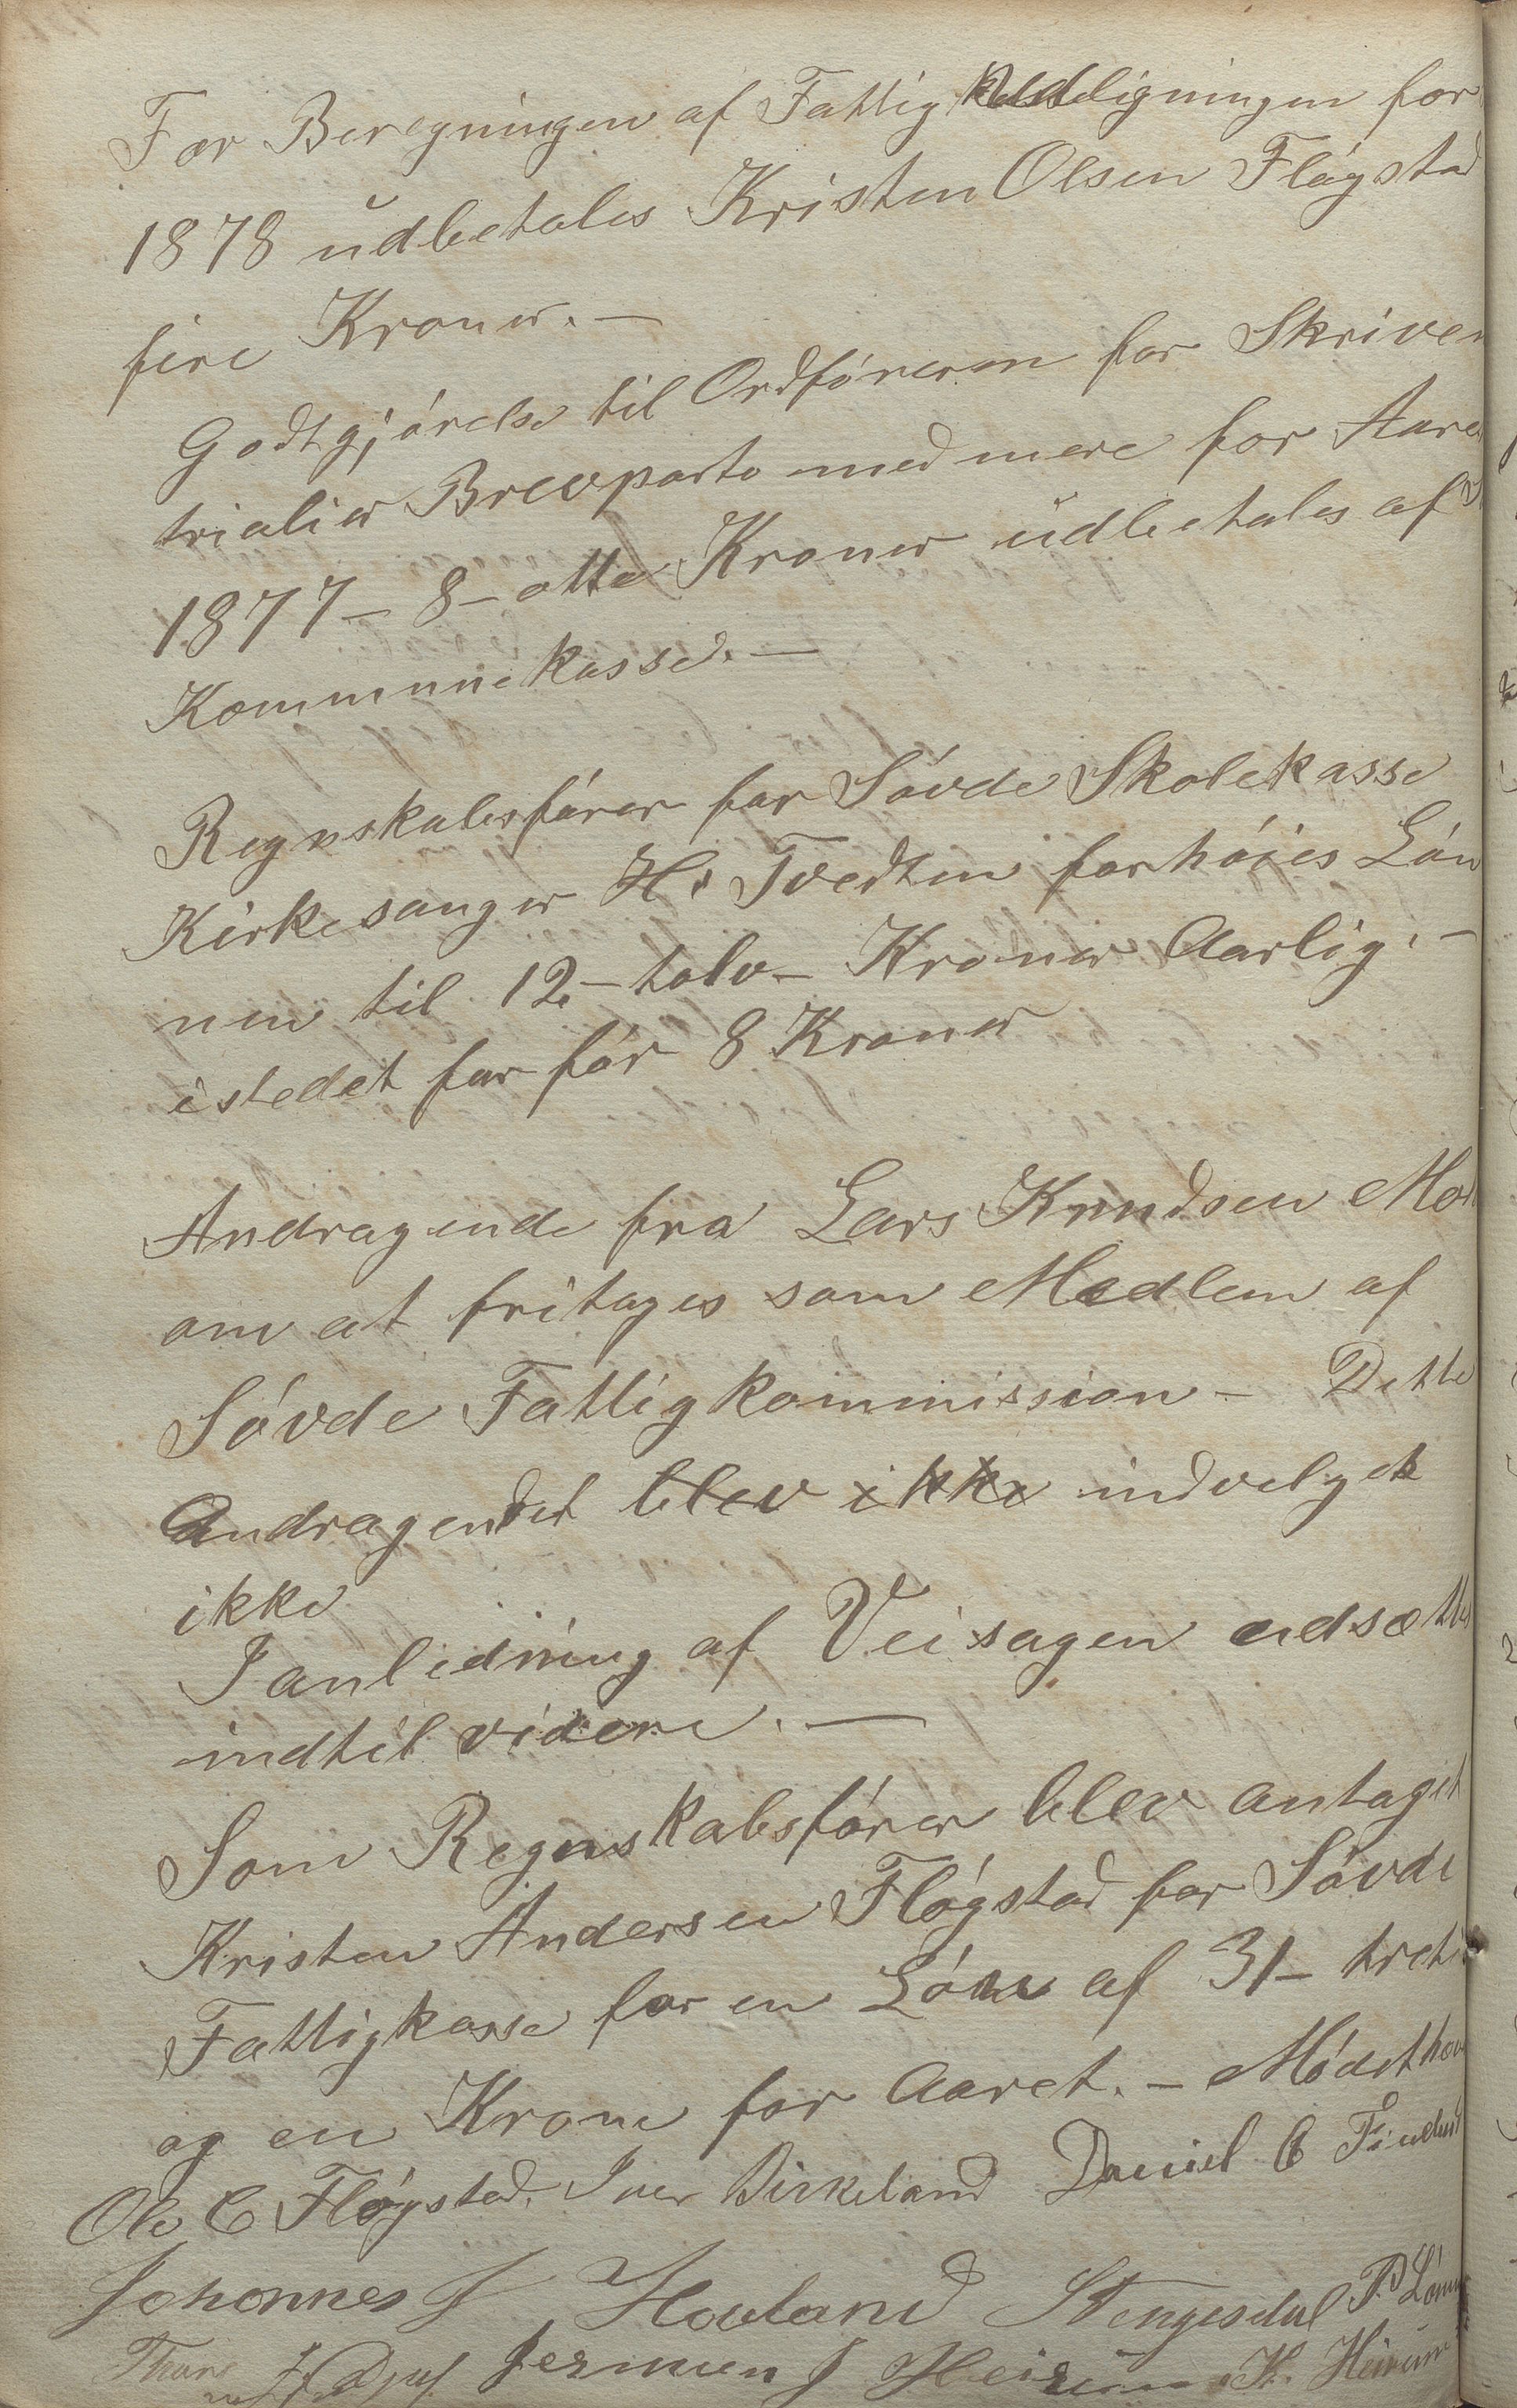 For Beregningen af Fattigudligningen for
1878 udbetales Kristen Olsen Fløgstad
fire Kroner. —
Godtgjørelse til Ordføreren for Skrivem
trialier Brevporto med mere for Aaret
1877 – 8 – otte Kroner udbetales af
Kommunekassed. —
Regnskabsfører for Søvde Skolekasse
Kirkesanger H. Tvedten forhøies Løn
nen til 12 – tolv – Kroner Aarlig. –
istedet for før 8 Kroner
Andragende fra Lars Knudsen Mo
om at fritages som Medlem af
Søvde Fattigkommission – Dette
Andragendet blev ikke indvelgek
ikke
I anledning af Veisagen udsættes
indtil videre. —
Som Regnskabsfører blev antaget
Kristen Andersen Fløgstad for Søvde
Fattigkasse for en Løn af 31 – treti
og en Krone for Aaret. – Mødet hæv
Ole C Fløgstad. Iver Birkeland Daniel C
Johannes J Hovland Stengesdal P.
Jermun J Heirum K. Heirum